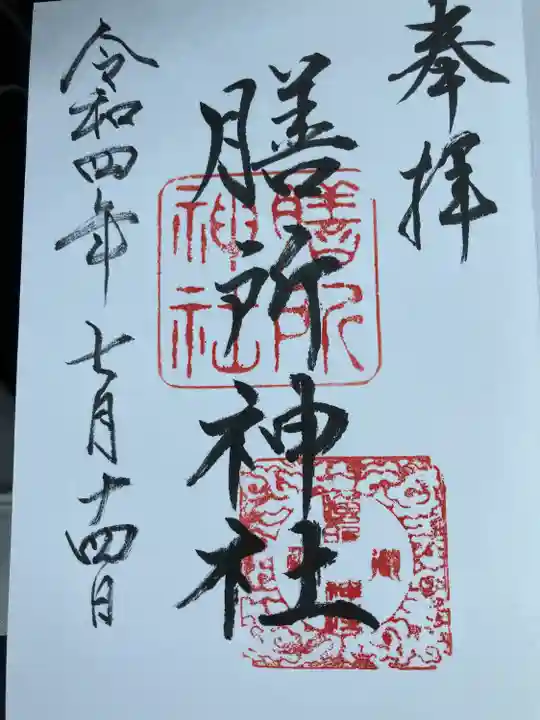 奉拝
膳所神社
膳所
神社
令和四年七月十四日